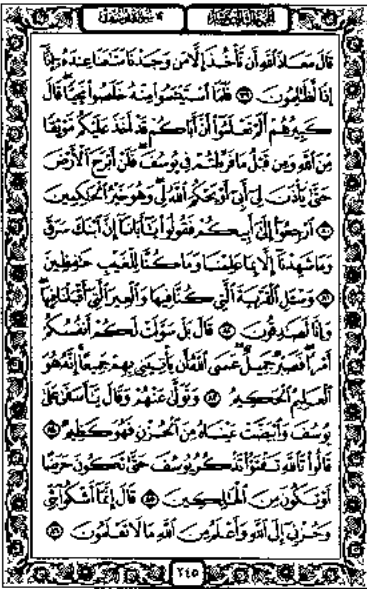 الجزء الثالث عشر سورة يوسف
قَالَ مَعَاذَ ٱللَّهِ أَن نَّأْخُذَ إِلَّا مَن وَجَدْنَا مَتَٰعَنَا عِندَهُۥٓ إِنَّآ
إِذًا لَّظَٰلِمُونَ ٧٩ فَلَمَّا ٱسْتَيْـَٔسُوا۟ مِنْهُ خَلَصُوا۟ نَجِيًّا ۖ قَالَ
كَبِيرُهُمْ أَلَمْ تَعْلَمُوٓا۟ أَنَّ أَبَاكُمْ قَدْ أَخَذَ عَلَيْكُم مَّوْثِقًا
مِّنَ ٱللَّهِ وَمِن قَبْلُ مَا فَرَّطتُمْ فِى يُوسُفَ ۖ فَلَنْ أَبْرَحَ ٱلْأَرْضَ
حَتَّىٰ يَأْذَنَ لِىٓ أَبِىٓ أَوْ يَحْكُمَ ٱللَّهُ لِى ۖ وَهُوَ خَيْرُ ٱلْحَٰكِمِينَ
٨٠ ٱرْجِعُوٓا۟ إِلَىٰٓ أَبِيكُمْ فَقُولُوا۟ يَٰٓأَبَانَآ إِنَّ ٱبْنَكَ سَرَقَ
وَمَا شَهِدْنَآ إِلَّا بِمَا عَلِمْنَا وَمَا كُنَّا لِلْغَيْبِ حَٰفِظِينَ
٨١ وَسْـَٔلِ ٱلْقَرْيَةَ ٱلَّتِى كُنَّا فِيهَا وَٱلْعِيرَ ٱلَّتِىٓ أَقْبَلْنَا فِيهَا ۖ
وَإِنَّا لَصَٰدِقُونَ ٨٢ قَالَ بَلْ سَوَّلَتْ لَكُمْ أَنفُسُكُمْ
أَمْرًا ۖ فَصَبْرٌ جَمِيلٌ ۖ عَسَى ٱللَّهُ أَن يَأْتِيَنِى بِهِمْ جَمِيعًا ۚ إِنَّهُۥ هُوَ
ٱلْعَلِيمُ ٱلْحَكِيمُ ٨٣ وَتَوَلَّىٰ عَنْهُمْ وَقَالَ يَٰٓأَسَفَىٰ عَلَىٰ
يُوسُفَ وَٱبْيَضَّتْ عَيْنَاهُ مِنَ ٱلْحُزْنِ فَهُوَ كَظِيمٌ ٨٤
قَالُوا۟ تَٱللَّهِ تَفْتَؤُا۟ تَذْكُرُ يُوسُفَ حَتَّىٰ تَكُونَ حَرَضًا
أَوْ تَكُونَ مِنَ ٱلْهَٰلِكِينَ ٨٥ قَالَ إِنَّمَآ أَشْكُوا۟ بَثِّى
وَحُزْنِىٓ إِلَى ٱللَّهِ وَأَعْلَمُ مِنَ ٱللَّهِ مَا لَا تَعْلَمُونَ ٨٦
٢٤٥